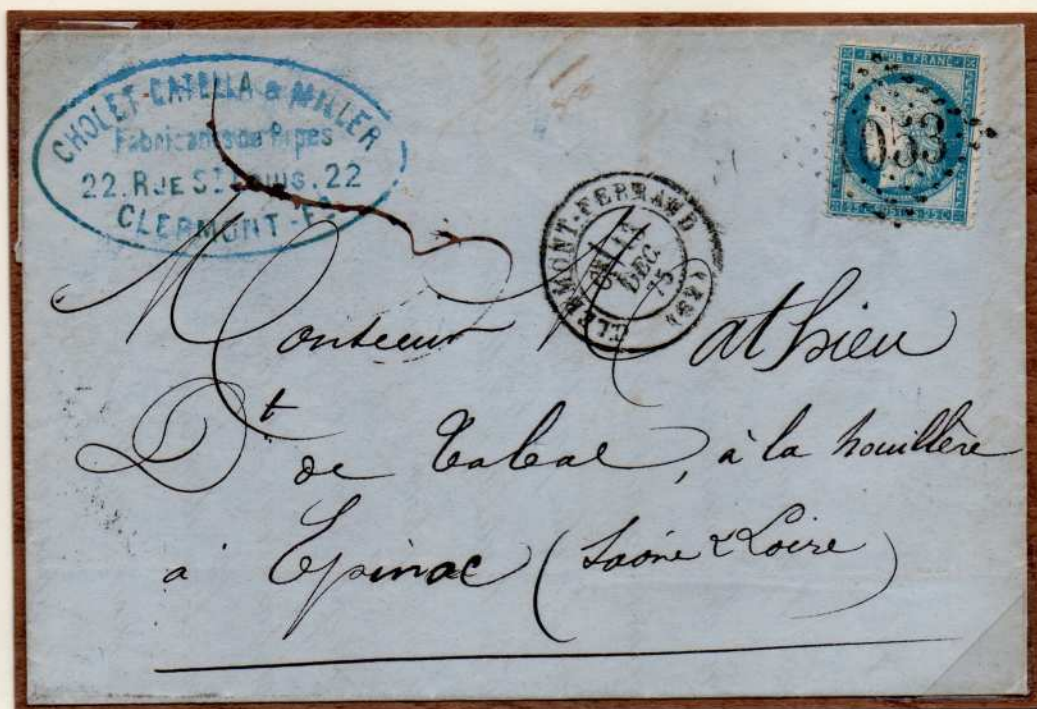 CHOLET-CATELLA & MILLER
Fabricants de Pipes
22. RUE ST LOUIS. 22
CLERMONT-FD
REPUB FRANC
053
25 C POSTES 25 C
CLERMONT-FERRAND
DEC.
75
Monsieur Mathieu
Dt de Tabac, à la houillère
à Epinac (Saône & Loire)